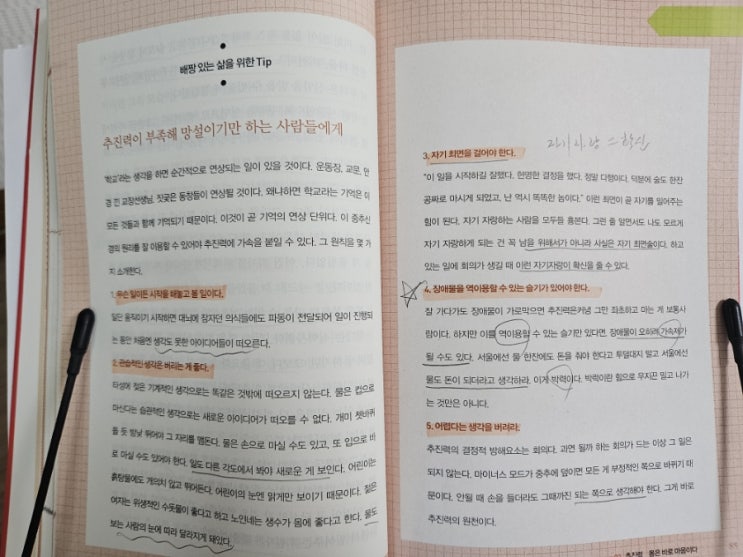 배짱 있는 삶을 위한 Tip
추진력이 부족해 망설이기만 하는 사람들에게
'학교'라는 생각을 하면 순간적으로 연상되는 일이 있을 것이다. 운동장, 교문, 안
경 낀 교장선생님, 짓궂은 동창들이 연상될 것이다. 왜냐하면 학교라는 기억은 이
모든 것들과 함께 기억되기 때문이다. 이것이 곧 기억의 연상 단위다. 이 중추신
경의 원리를 잘 이용할 수 있어야 추진력에 가속을 붙일 수 있다. 그 원칙을 몇 가
지 소개한다.
1. 무슨 일이든 시작을 해놓고 볼 일이다.
일은 움직이기 시작하면 대뇌에 잠자던 의식들에도 파동이 전달되어 일이 진행되
는 동안 처음엔 생각도 못한 아이디어들이 떠오른다.
2. 관습적인 생각은 버리는 게 좋다.
타성에 젖은 기계적인 생각으로는 똑같은 것밖에 떠오르지 않는다. 물은 컵으로
마신다는 습관적인 생각으로는 새로운 아이디어가 떠오를 수 없다. 개미 쳇바퀴
돌 듯 밤낮 뛰어야 그 자리를 맴돈다. 물은 손으로 마실 수도 있고, 또 입으로 바
로 마실 수도 있어야 한다. 일도 다른 각도에서 봐야 새로운 게 보인다. 어린이는
흙탕물에도 개의치 않고 뛰어든다. 어린이의 눈엔 맑게만 보이기 때문이다. 젊은
여자는 위생적인 수돗물이 좋다고 하고 노인네는 생수가 몸에 좋다고 한다. 물도
보는 사람의 눈에 따라 달라지게 돼있다.
자기사랑 = 확신
3. 자기 최면을 걸어야 한다.
"이 일을 시작하길 잘했다. 현명한 결정을 했다. 정말 다행이다. 덕분에 술도 한잔
공짜로 마시게 되었고, 난 역시 똑똑한 놈이다." 이런 최면이 곧 자기를 밀어주는
힘이 된다. 자기 자랑하는 사람을 모두들 흉본다. 그런 줄 알면서도 나도 모르게
자기 자랑하게 되는 건 꼭 남을 위해서가 아니라 사실은 자기 최면술이다. 하고
있는 일에 회의가 생길 때 이런 자기자랑이 확신을 줄 수 있다.
4. 장애물을 역이용할 수 있는 슬기가 있어야 한다.
잘 가다가도 장애물이 가로막으면 추진력은커녕 그만 좌초하고 마는 게 보통사
람이다. 하지만 이를 역이용할 수 있는 슬기만 있다면, 장애물이 오히려 가속제가
될 수도 있다. 서울에선 물 한잔에도 돈을 줘야 한다고 투덜대지 말고 서울에선
물도 돈이 되더라고 생각하라. 이게 박력이다. 박력이란 힘으로 우지끈 밀고 나가
는 것만은 아니다.
5. 어렵다는 생각을 버려라.
추진력의 결정적 방해요소는 회의다. 과연 될까 하는 회의가 드는 이상 그 일은
되지 않는다. 마이너스 모드가 중추에 덮이면 모든 게 부정적인 쪽으로 바뀌기 때
문이다. 안될 때 손을 들더라도 그때까진 되는 쪽으로 생각해야 한다. 그게 바로
추진력의 원천이다.
추진력 물은 바로 마음이다